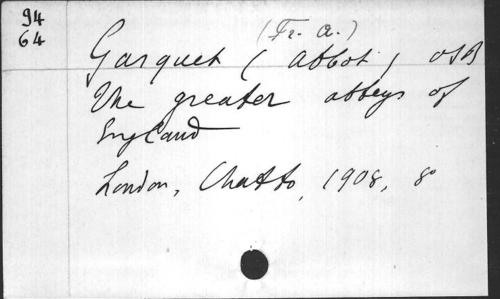 94
64
(Fr. A.)
Gasquet (Abbot) OSB
The greater abbeys of
England
London, Chatto, 1908, 8°